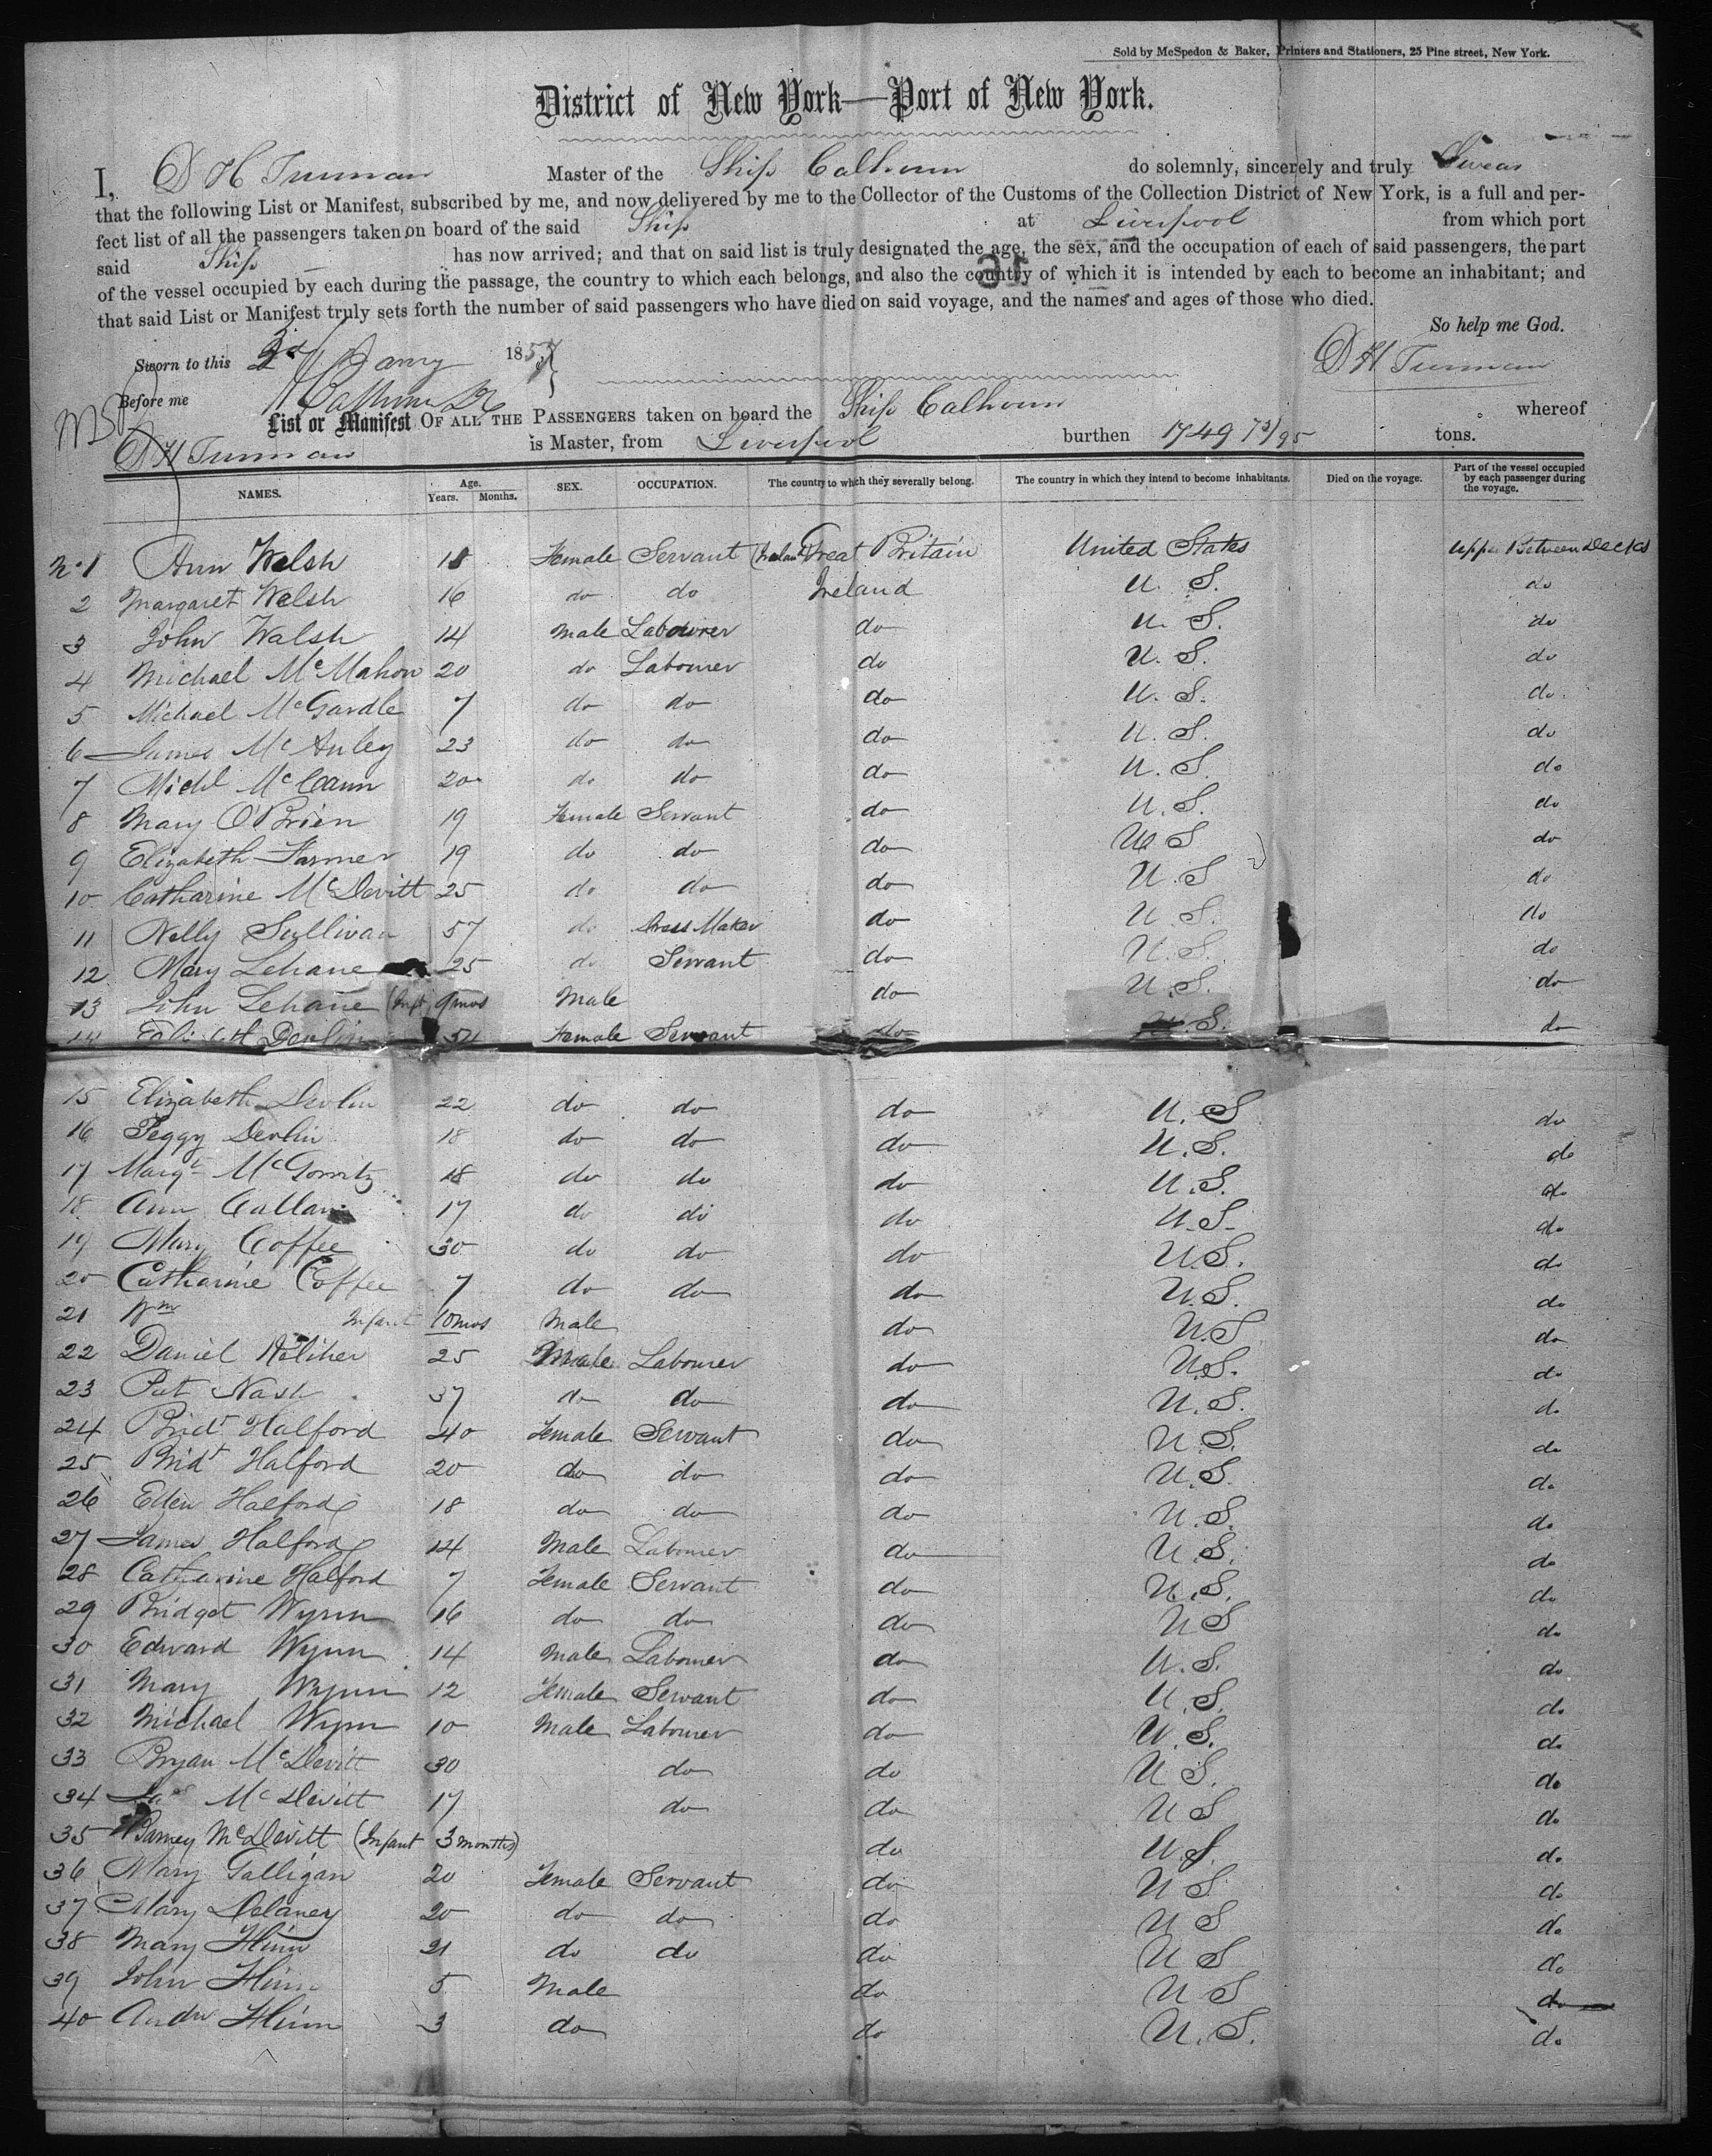 Sold by McSpedon & Baker, Printers and Stationers, 25 Pine street, New York.
District of New York—Port of New York.
I, D H Truman Master of the Ship Calhoun do solemnly, sincerely and truly Swear
that the following List or Manifest, subscribed by me, and now delivered by me to the Collector of the Customs of the Collection District of New York, is a full and per-
fect list of all the passengers taken on board of the said Ship at Liverpool from which port
said Ship has now arrived; and that on said list is truly designated the age, the sex, and the occupation of each of said passengers, the part
of the vessel occupied by each during the passage, the country to which each belongs, and also the country of which it is intended by each to become an inhabitant; and
that said List or Manifest truly sets forth the number of said passengers who have died on said voyage, and the names and ages of those who died.
So help me God.
Sworn to this 3d Jany 1857 D H Truman
Before me
List or Manifest OF ALL THE PASSENGERS taken on board the Ship Calhoun whereof
D H Truman is Master, from Liverpool burthen 1749 73/95 tons.
NAMES. Age. Years. Months. SEX. OCCUPATION. The country to which they severally belong. The country in which they intend to become inhabitants. Died on the voyage. Part of the vessel occupied by each passenger during the voyage.
No 1 Ann Welsh 18 Female Servant (Ireland) Great Britain United States Upper Between Decks
2 Margaret Welsh 16 do do Ireland U. S. do
3 John Walsh 14 Male Labourer do U. S. do
4 Michael McMahon 20 do Labourer do U. S. do
5 Michael McGardle 7 do do do U. S. do
6 James McAuley 23 do do do U. S. do
7 Michl McCann 20 do do do U. S. do
8 Mary O'Brien 19 Female Servant do U. S. do
9 Elizabeth Farmer 19 do do do U S do
10 Catharine McDevitt 25 do do do U. S do
11 Nelly Sullivan 57 do Dress Maker do U S. do
12 Mary Lehane 25 do Servant do U. S. do
13 John Lehane (Inft) 9 mos Male do U. S. do
14 Devlin Female Servant do U. S. do
15 Elizabeth Devlin 22 do do do U. S do
16 Peggy Devlin 18 do do do U. S. do
17 Margt 18 do do do U. S. do
18 Ann Callan 17 do do do U. S. do
19 Mary Coffee 30 do do do U S. do
20 Catharine Coffee 7 do do do U. S. do
21 Wm Infant 10 mos Male do U. S do
22 Daniel 25 Male Labourer do U. S. do
23 Pat Nash 37 do do do U. S. do
24 Bridt Halford 40 Female Servant do U S. do
25 Bridt Halford 20 do do do U. S. do
26 Ellen Halford 18 do do do U. S. do
27 James Halford 14 Male Labourer do U. S. do
28 Catharine Halford 7 Female Servant do U. S. do
29 Bridget Wynn 16 do do do U S do
30 Edward Wynn 14 Male Labourer do U. S. do
31 Mary Wynn 12 Female Servant do U. S. do
32 Michael Wynn 10 Male Labourer do U. S. do
33 Bryan McDevitt 30 do do U S. do
34 Jas McDevitt 17 do do U S do
35 Barney McDevitt (Infant 3 months) do U. S. do
36 Mary Galligan 20 Female Servant do U S do
37 Mary Delaney 20 do do do U S do
38 Mary Flinn 21 do do do U S do
39 John Flinn 5 Male do U S do
40 Andw Flinn 3 do do U. S. do